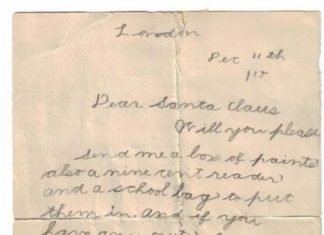 London
Dec 11th
1915
Dear Santa Claus
Will you please
send me a box of paints
also a nine cent reader
and a school bag to put
them in. and if you
have any